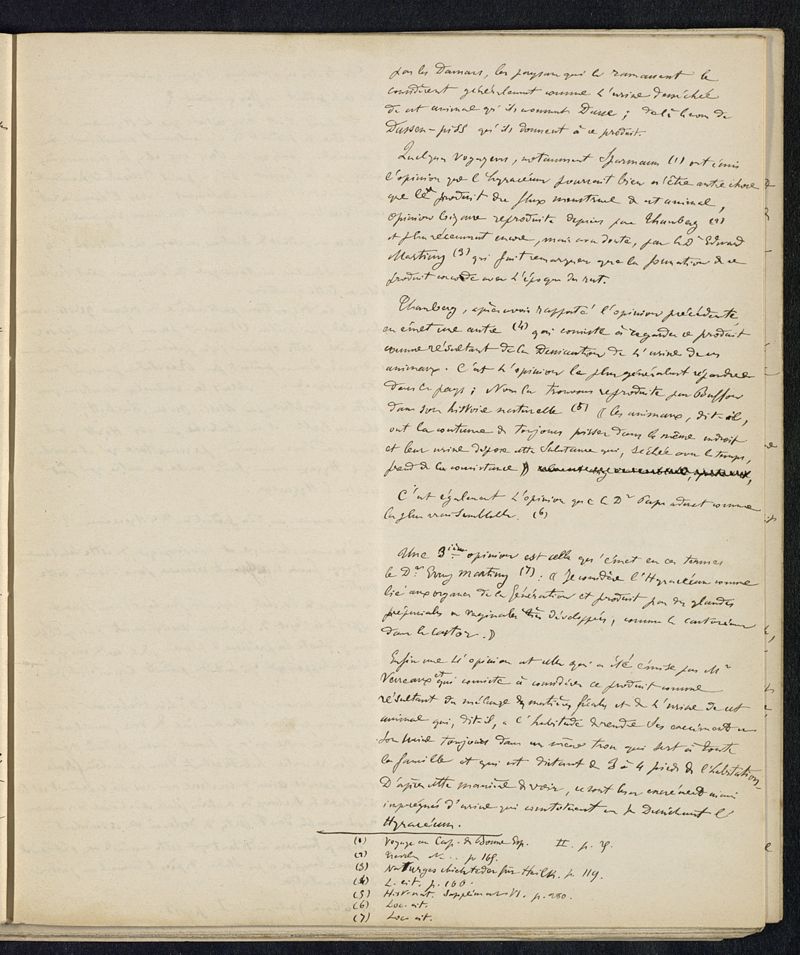 par les Damans, les paysans qui le ramassent le
considèrent généralement comme l'urine desséchée
de cet animal qu'ils nomment Dasse ; de là le nom de
Dassen-piss qu'ils donnent à ce produit.
Quelques voyageurs, notamment Sparmann (1) ont émis
l'opinion que l'hyracéum pourrait bien n'être autre chose
que le produit du flux menstruel de cet animal,
opinion bizarre reproduite depuis par Thunberg (2)
et plus récemment encore, mais avec doute, par le Dr Edward
Martiny (3) qui fait remarquer que la formation de ce
produit coincide avec l'époque du rut.
Thunberg, après avoir rapporté l'opinion précédente
en émet une autre (4) qui consiste à regarder ce produit
comme résultant de la Dessiccation de l'urine de ces
animaux. C'est l'opinion la plus généralement répandue
dans le pays ; Nous la trouvons reproduite par Buffon
dans son histoire naturelle (5) « les animaux, dit-il,
ont la coutume de toujours pisser dans le même endroit
et leur urine dépose cette substance qui, séchée avec le temps,
prend de la consistance »
C'est également l'opinion que le Dr Pape admet comme
la plus vraisemblable. (6)
Une 3ième opinion est celle qu'émet en ces termes
le Dr Martiny (7) : « Je considère l'Hyracéum comme
lié aux organes de la Génération et produit par des glandes
prépuciales ou vaginales très développées, comme le castoréum
dans le castor. »
Enfin une 4e opinion est celle qui a été émise par Mr
Verreaux et qui consiste à considérer ce produit comme
résultant du mélange des matières fécales et de l'urine de cet
animal qui, dit-il, a l'habitude de rendre ses excréments et
son urine toujours dans un même trou qui sert à toute
la famille et qui est distant de 3 à 4 pieds de l'habitation.
D'après cette manière de voir, ce sont les excréments ainsi
imprégnés d'urine qui constituent en se desséchant l'
Hyracéum.
(1) Voyage au Cap. de Bonne Esp. II. p. 
(2) p. 165.
(3) Naturgeschichte der für Heilk. p. 119.
(4) L. cit. p. 166.
(5) Hist. nat. Supplément VI. p. 280.
(6) Loc. cit.
(7) Loc. cit.